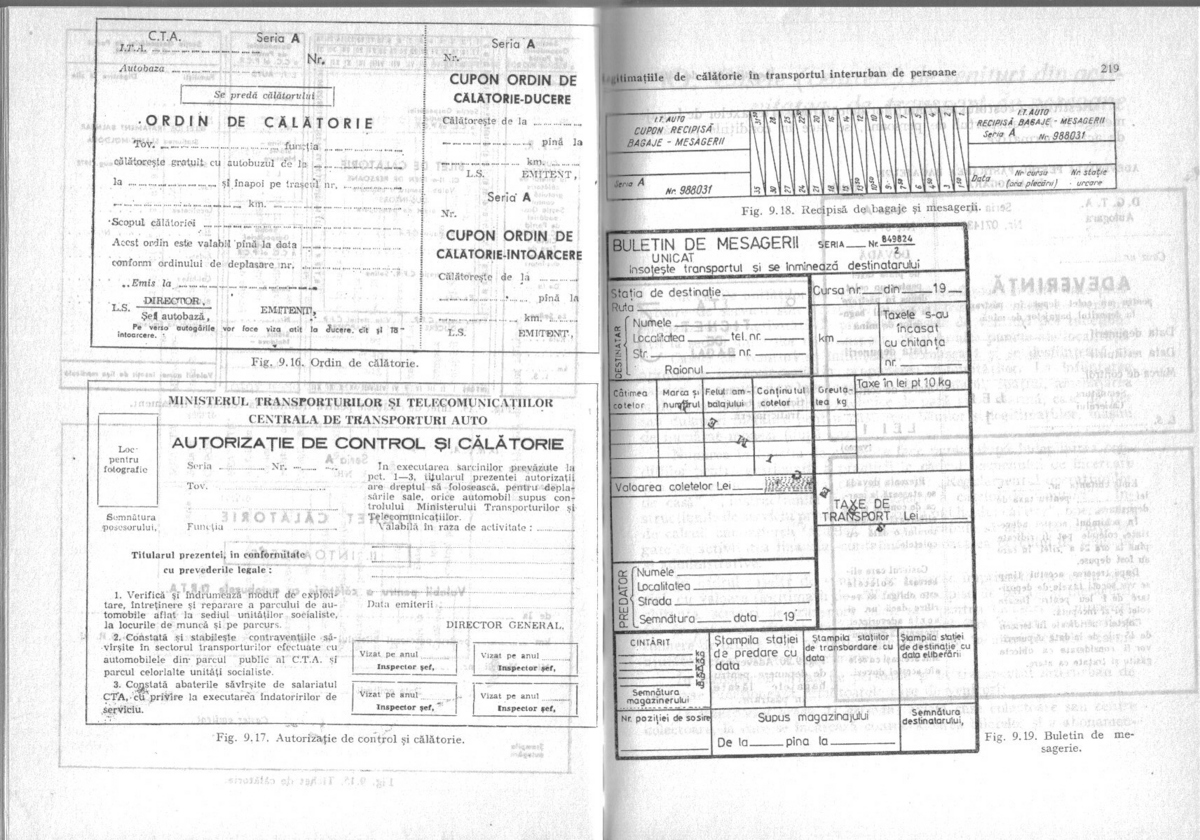 C.T.A. Seria A
I.T.A.
Nr.
Autobaza
Se predă călătorului
ORDIN DE CĂLĂTORIE
Tov. funcția
călătorește gratuit cu autobuzul de la
la și înapoi pe traseul nr.
km.
Scopul călătoriei
Acest ordin este valabil pînă la data
conform ordinului de deplasare nr.
Emis la
L.S. DIRECTOR, EMITENT,
Șef autobază,
Pe verso autogările vor face viza atît la ducere, cît și la
întoarcere.
Seria A
Nr.
CUPON ORDIN DE
CĂLĂTORIE-DUCERE
Călătorește de la
pînă la
km.
L.S. EMITENT,
Seria A
Nr.
CUPON ORDIN DE
CĂLĂTORIE-INTOARCERE
Călătorește de la
pînă la
km.
L.S. EMITENT,
Fig. 9.16. Ordin de călătorie.
MINISTERUL TRANSPORTURILOR ȘI TELECOMUNICAȚIILOR
CENTRALA DE TRANSPORTURI AUTO
AUTORIZAȚIE DE CONTROL ȘI CĂLĂTORIE
Loc
pentru
fotografie
Semnătura
posesorului,
Seria Nr.
Tov.
Funcția
In executarea sarcinilor prevăzute la
pct. 1—3, titularul prezentei autorizații
are dreptul să folosească, pentru depla-
sările sale, orice automobil supus con-
trolului Ministerului Transporturilor și
Telecomunicațiilor.
Valabilă în raza de activitate :
Titularul prezentei, în conformitate
cu prevederile legale :
1. Verifică și îndrumează modul de exploa-
tare, întreținere și reparare a parcului de au-
tomobile aflat la sediul unităților socialiste,
la locurile de muncă și pe parcurs.
2. Constată și stabilește contravențiile să-
vîrșite în sectorul transporturilor efectuate cu
automobilele din parcul public al C.T.A. și
parcul celorlalte unități socialiste.
3. Constată abaterile săvîrșite de salariatul
CTA, cu privire la executarea îndatoririlor de
serviciu.
Data emiterii
DIRECTOR GENERAL,
Vizat pe anul
Inspector șef,
Vizat pe anul
Inspector șef,
Vizat pe anul
Inspector șef,
Vizat pe anul
Inspector șef,
Fig. 9.17. Autorizație de control și călătorie.
legitimațiile de călătorie în transportul interurban de persoane 219
I.T. AUTO
CUPON RECIPISĂ
BAGAJE - MESAGERII
Seria A Nr. 988031
I.T. AUTO
RECIPISĂ BAGAJE - MESAGERII
Seria A Nr. 988031
Data Nr cursa Nr. stație
(ora plecării) urcare
Fig. 9.18. Recipisă de bagaje și mesagerii.
BULETIN DE MESAGERII SERIA Nr. 849824
UNICAT 2
însoțește transportul și se înmînează destinatarului
Stația de destinație
Ruta
DESTINATAR
Numele
Localitatea tel. nr.
Str. nr.
Raionul
Cursa nr. din 19
km
Taxele s-au
încasat
cu chitanța
nr.
Cătimea
coletelor
Marca și
numărul
Felul am-
balajului
Conținutul
coletelor
Greuta-
tea kg
Taxe în lei pt 10 kg
Valoarea coletelor Lei
TAXE DE
TRANSPORT Lei
PREDATOR
Numele
Localitatea
Strada
Semnătura data 19
CINTĂRIT
kg
kg
kg
kg
Semnătura
magazinerului
Ștampila stației
de predare cu
data
Ștampila stațiilor
de transbordare cu
data
Ștampila stației
de destinație cu
data eliberării
Nr. poziției de sosire
Supus magazinajului
De la pina la
Semnătura
destinatarului,
Fig. 9.19. Buletin de me-
sagerie.